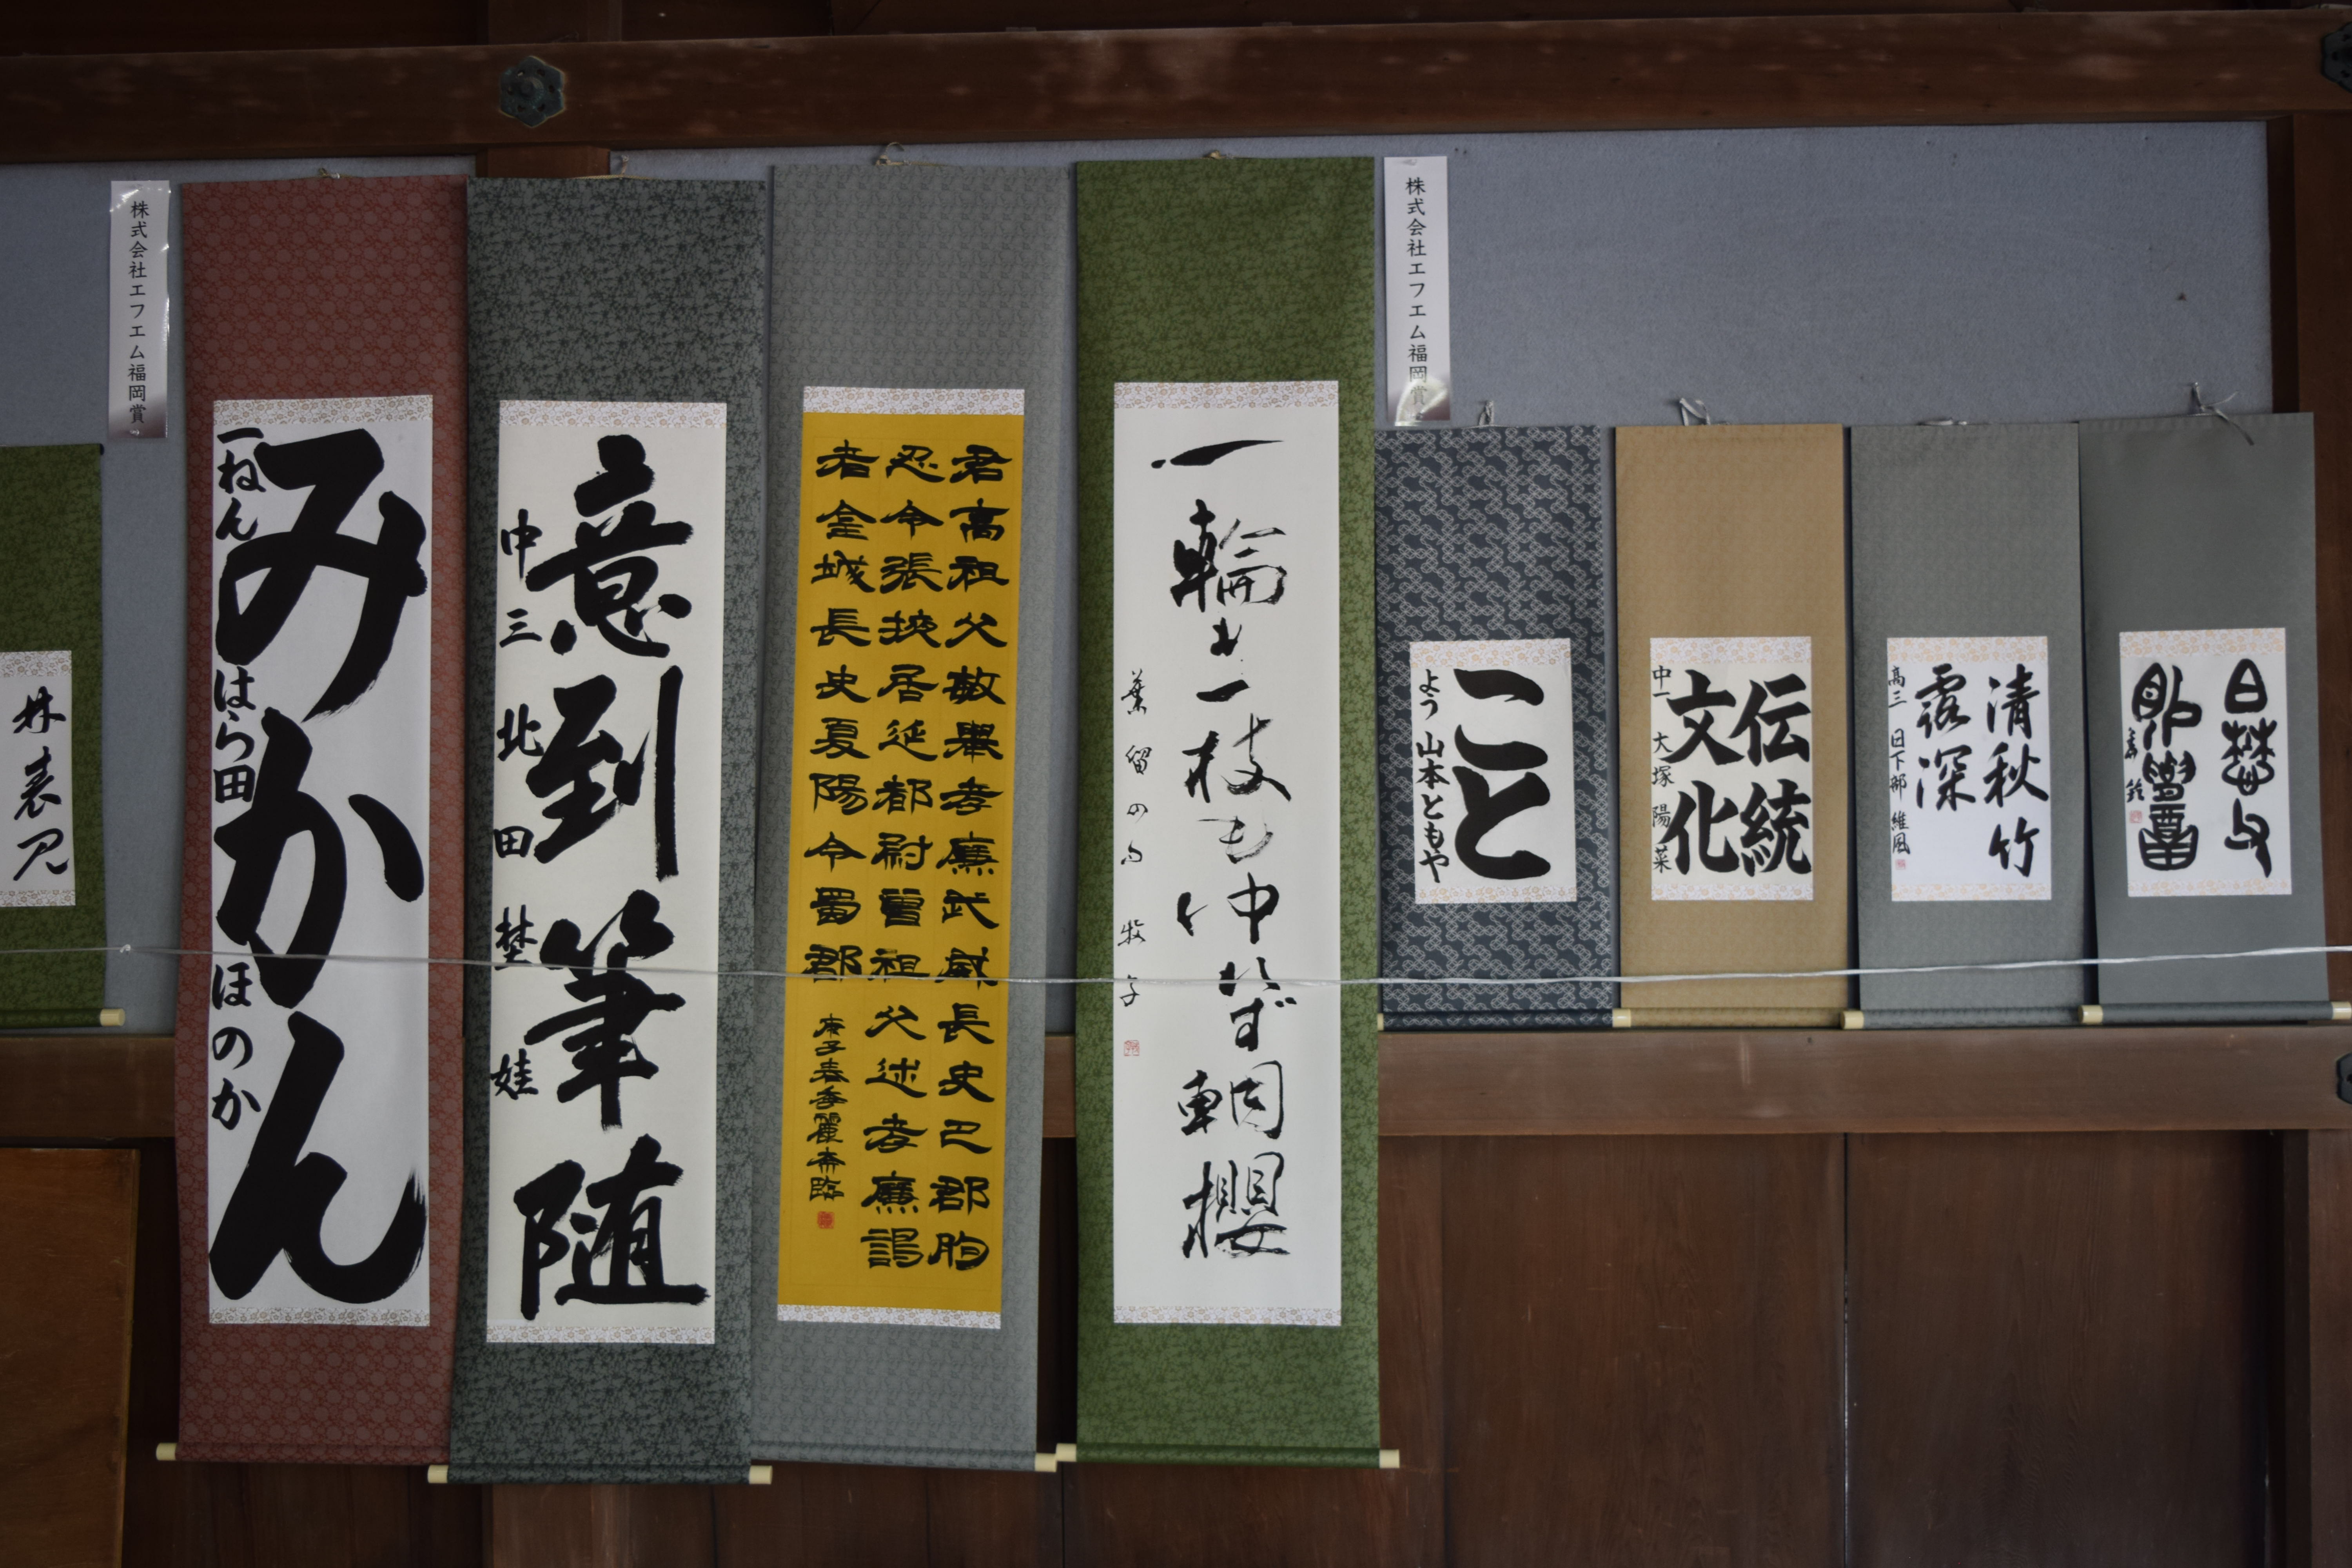 株式会社エフエム福岡賞
みかん
一ねん はら田 ほのか
意到筆随
中三 北田 埜娃
君高祖父敏舉孝廉武威長史巴郡朐
忍令張掖居延都尉曾祖父述孝廉謁
者金城長史夏陽令蜀郡
庚子春季麗斎臨
株式会社エフエム福岡賞
こと
よう 山本ともや
伝統
文化
中一 大塚 陽菜
清秋竹
露深
高三 日下部 維風